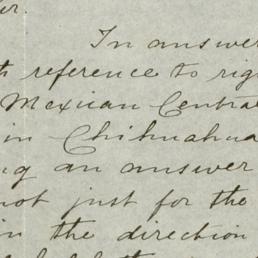 er.
In answer
th reference to rig
Mexican Central
in Chihuahua
ng an answer
not just for the
in the direction